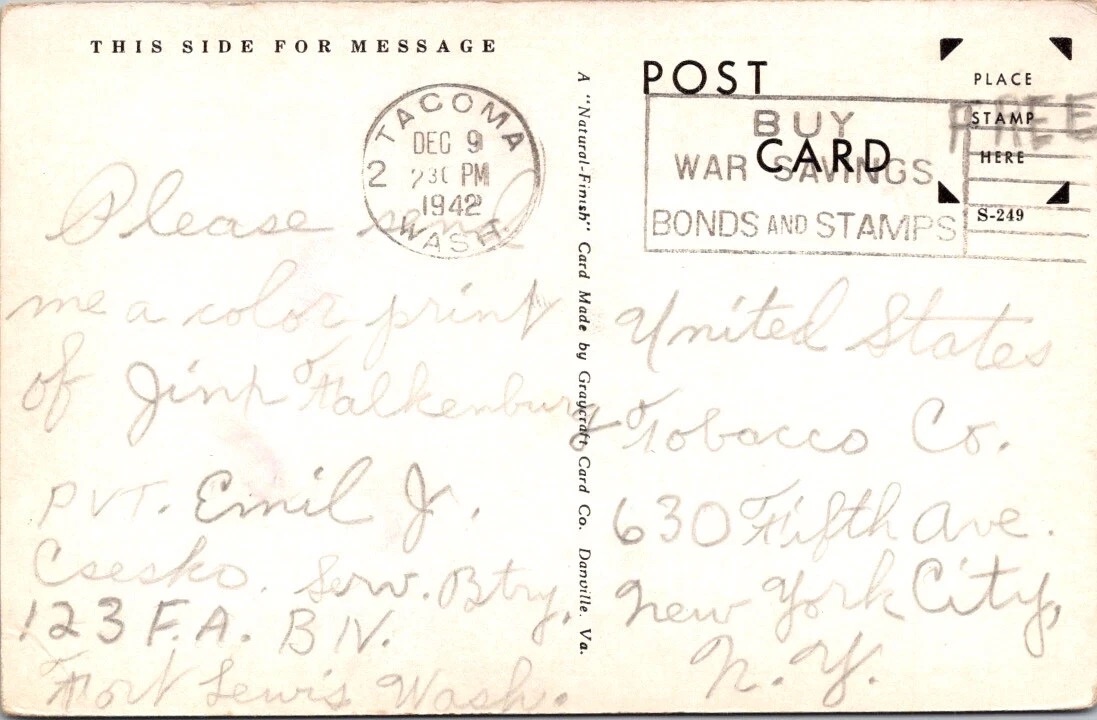 THIS SIDE FOR MESSAGE
TACOMA
DEC 9
2 230 PM
1942
WASH.
Please send
me a color print
of Jinx Falkenburg
PVT. Emil J.
Csesko. Serv. Btry.
123 F.A. BN.
Fort Lewis Wash.
A "Natural-Finish" Card Made by Graycraft Card Co. Danville. Va.
POST
CARD
BUY
WAR SAVINGS
BONDS AND STAMPS
FREE
PLACE
STAMP
HERE
S-249
United States
Tobacco Co.
630 Fifth Ave.
New York City,
N. Y.